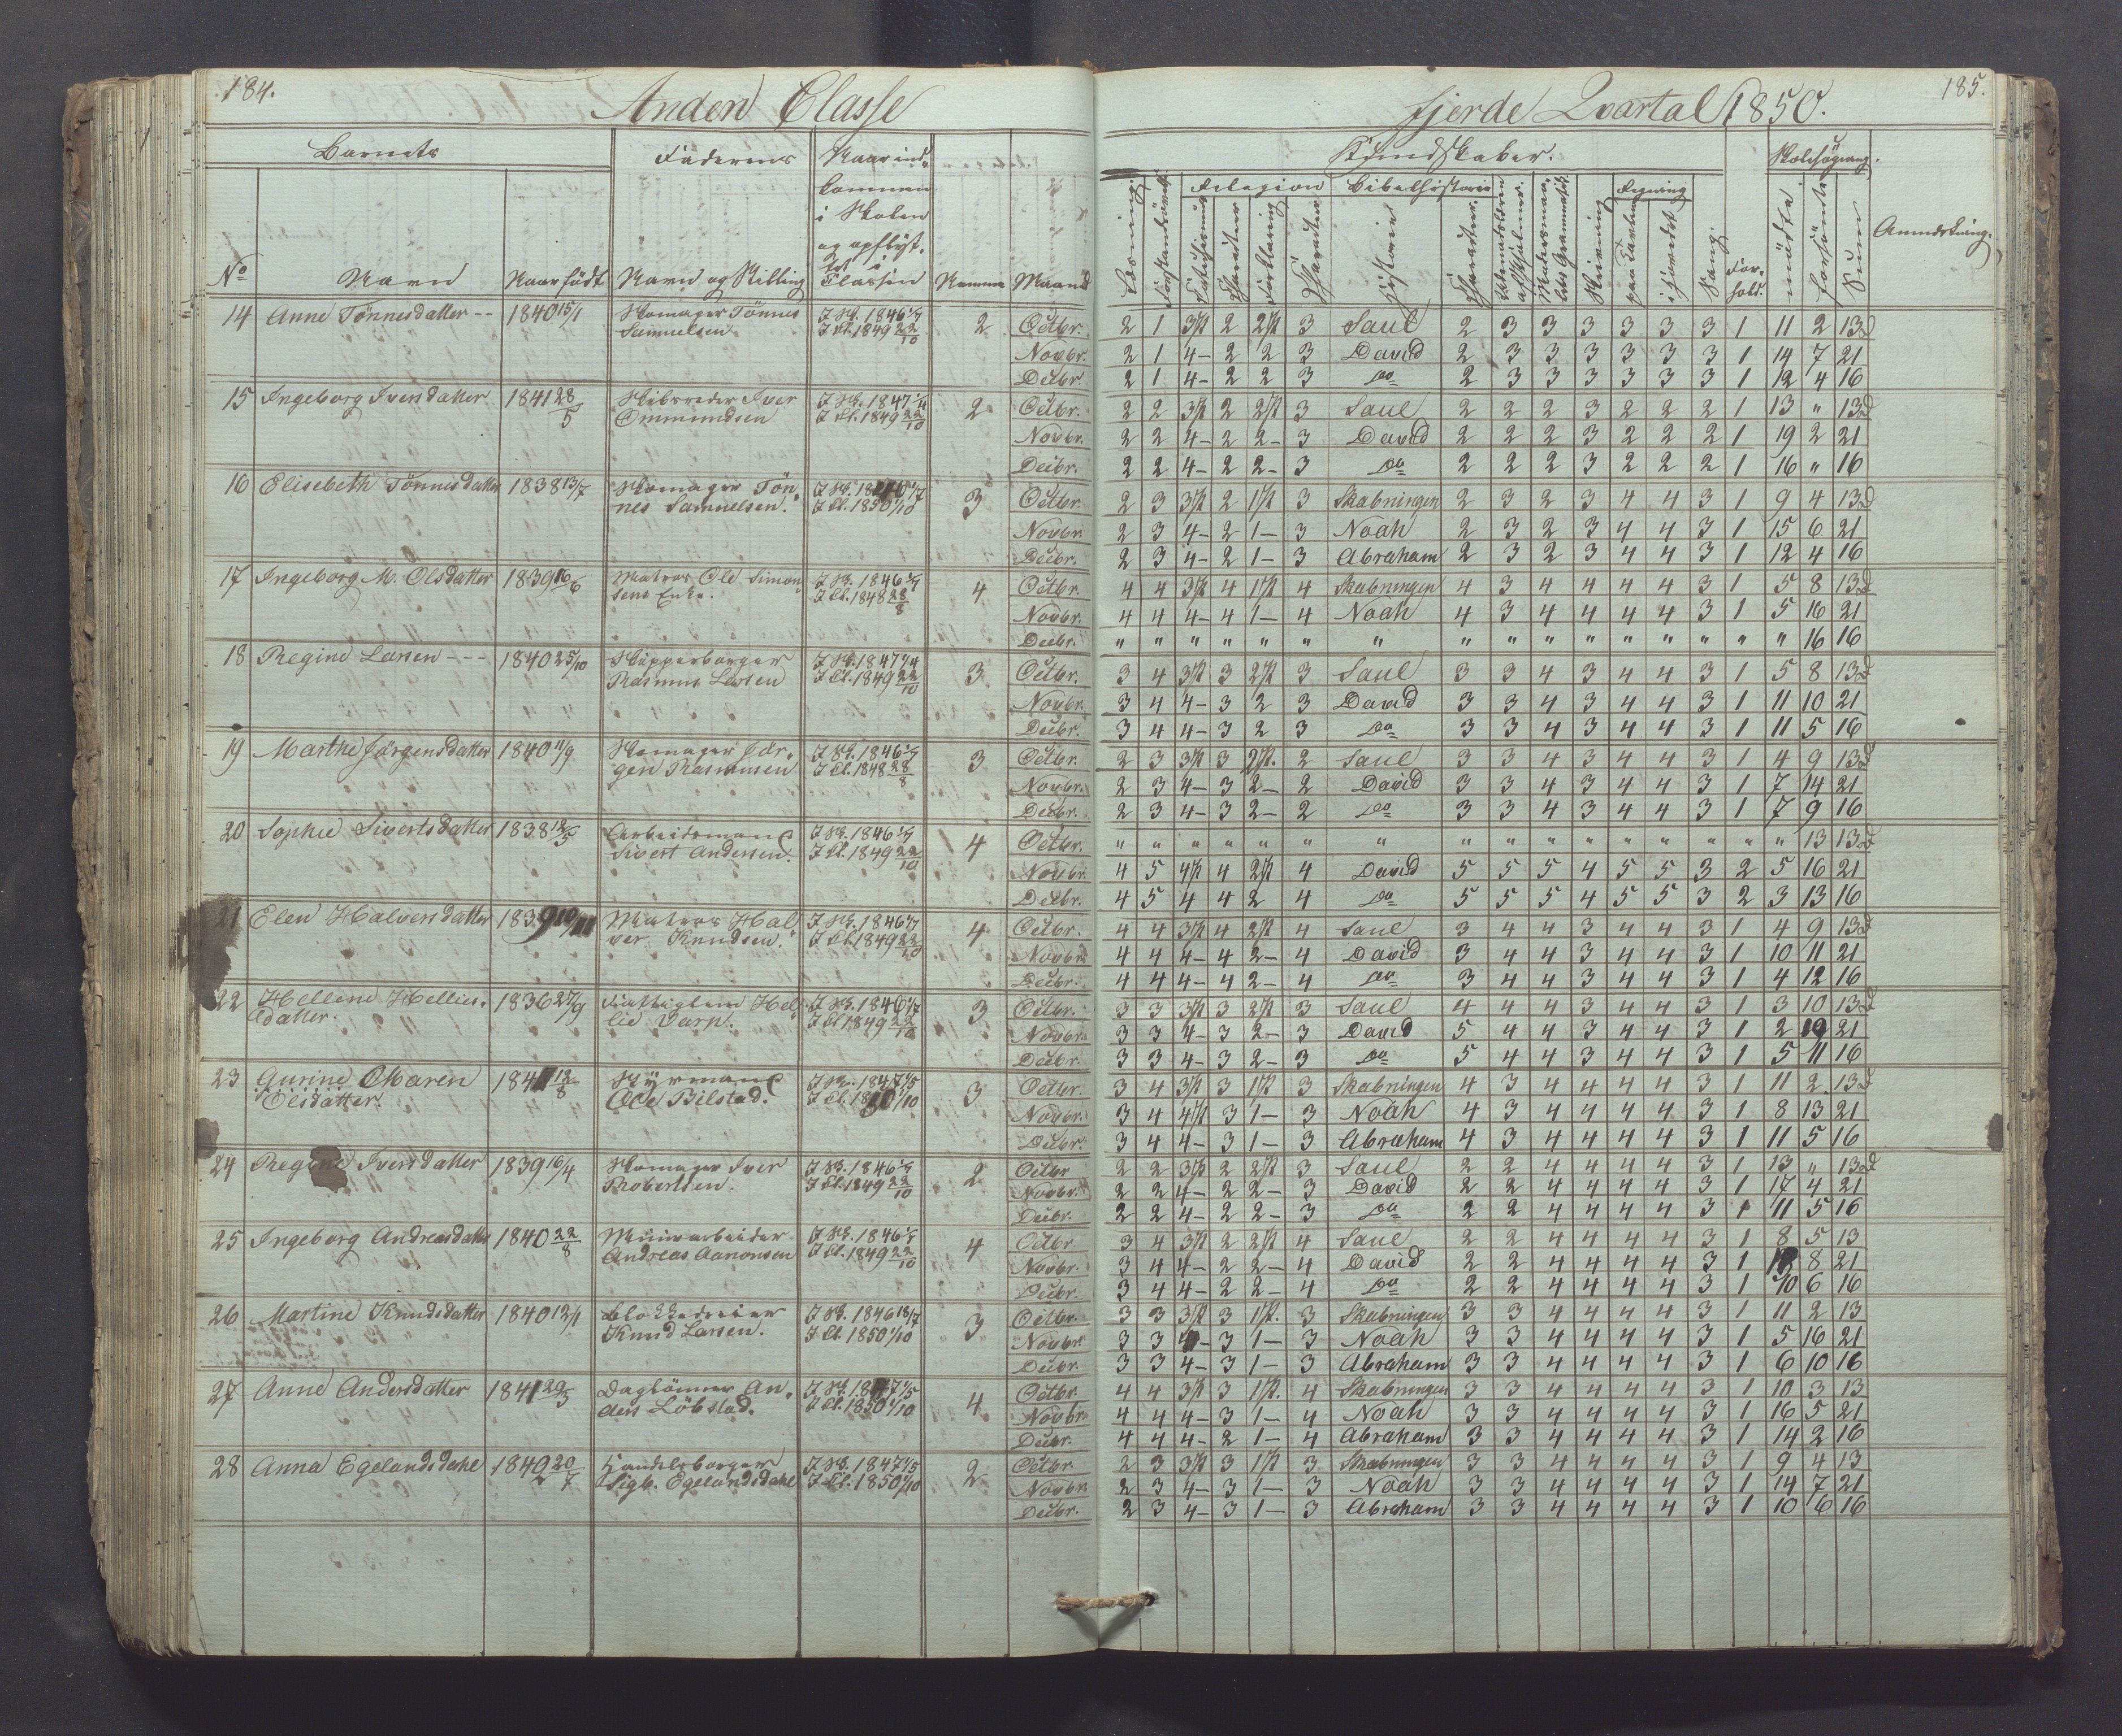 184.
Anden Classe
Barnets
Faderens
Naar ind-
kommen
i Skolen
og opflyt-
tet i
Classen
No
Navn
Naar födt
Navn og Stilling
Maaned
14 Anne Tönnesdatter -- 1840 15/1 Skomager Tönnes 2 Octbr.
Samuelsen I Cl. 1849 22/10
Novbr.
Decbr.
15 Ingeborg Iversdatter 1841 28/5 Skibsreder Iver 2 Octbr.
Ommundsen I Cl. 1849 22/10
Novbr.
Decbr.
16 Elisebeth Tönnesdatter 1838 13/7 Skomager Tön- 3 Octbr.
nes Samuelsen. I Cl. 1850 1/10
Novbr.
Decbr.
17 Ingeborg M. Olsdatter 1839 16/6 Matros Ole Simon- 4 Octbr.
sens Enke. I Cl. 1848 28/8
Novbr.
Decbr.
18 Regine Larsen --- 1840 25/10 Skipperborger 3 Octbr.
Rasmus Larsen I Cl. 1849 22/10
Novbr.
Decbr.
19 Marthe Jørgensdatter 1840 11/9 Skomager Jør- 3 Octbr.
gen Rasmussen I Cl. 1848 28/8
Novbr.
Decbr.
20 Sophie Sivertsdatter 1838 12/5 Arbeidsmand 4 Octbr.
Sivert Andersen. I Cl. 1849 22/10
Novbr.
Decbr.
21 Elen Halversdatter 1839 10/11 Matros Hal- 4 Octbr.
ver Knudsen. I Cl. 1849 22/10
Novbr.
Decbr.
22 Hellene Hellies- 1836 27/9 Fattiglem Hel- 3 Octbr.
datter. lie Varp. I Cl. 1849 22/10
Novbr.
Decbr.
23 Gurine Maren 12/8 Styrmand 3 Octbr.
Olsdatter. Ole Bilstad.
Novbr.
Decbr.
24 Regine Iversdatter 1839 16/4 Skomager Iver 2 Octbr
Robertsen. I Cl. 1849 22/10
Novbr.
Decbr.
25 Ingeborg Andreasdatter 1840 22/8 Minerarbeider 4 Octbr
Andreas Aanonsen I Cl. 1849 22/10
Novbr.
Decbr.
26 Martine Knudsdatter 1840 12/1 Blokkedreier I Sk. 1846 18/7 3 Octbr.
Knud Larsen. I Cl. 1850 1/10
Novbr.
Decbr.
27 Anne Andersdatter 1841 29/3 Daglönner An- 4 Octbr
ders Löbstad. I Cl. 1850 1/10
Novbr.
Decbr.
28 Anna Egelandsdahl 1840 20/7 Handelsborger 2 Octbr
Sigb. Egelandsdahl I Cl. 1850 1/10
Novbr.
Decbr.
185.
Fjerde Qvartal 1850.
Kundskaber.
Skolesögning.
Religion Bibelhistorie Regning
Læsning
Forklaring
Historie
Skrivning
paa Tavlen
i Hovedet
Sang.
For-
hold.
mödte
forsömte
Sum
Anmærkning.
2 1 3 2 2 3 Saul 2 3 3 3 3 3 3 1 11 2 13
2 1 4- 2 2 3 David 2 3 3 3 3 3 3 1 14 7 21
2 1 4- 2 2 3 Do 2 3 3 3 3 3 3 1 12 4 16
2 2 3 2 2 3 Saul 2 2 2 3 2 2 2 1 13 " 13
2 2 4- 2 2- 3 David 2 2 2 3 2 2 2 1 19 2 21
2 2 4- 2 2- 3 Do 2 2 2 3 2 2 2 1 16 " 16
2 3 3 2 1 3 Skabningen 2 3 2 3 4 4 3 1 9 4 13
2 3 4- 2 1- 3 Noah 2 3 2 3 4 4 3 1 15 6 21
2 3 4- 2 1- 3 Abraham 2 3 2 3 4 4 3 1 12 4 16
4 4 3 4 1 4 Skabningen 4 3 4 4 4 4 3 1 5 8 13
4 4 4- 4 1- 4 Noah 4 3 4 4 4 4 3 1 5 16 21
" " " " " " " " " " " " " " " " 16 16
3 4 3 3 2 3 Saul 3 3 4 3 4 4 3 1 5 8 13
3 4 4- 3 2 3 David 3 3 4 3 4 4 3 1 11 10 21
3 4 4- 3 2 3 Do 3 3 4 3 4 4 3 1 11 5 16
2 3 3 3 2 2 Saul 3 3 4 3 4 4 3 1 4 9 13
2 3 4- 3 2- 2 David 3 3 4 3 4 4 3 1 7 14 21
2 3 4- 3 2- 2 Do 3 3 4 3 4 4 3 1 7 9 16
" " " " " " " " " " " " " " " " 13 13
4 5 4 4 2 4 David 5 5 5 4 5 5 3 2 5 16 21
4 5 4 4 2 4 Do 5 5 5 4 5 5 3 2 3 13 16
4 4 3 4 2 4 Saul 3 4 4 3 4 4 3 1 4 9 13
4 4 4- 4 2- 4 David 3 4 4 3 4 4 3 1 10 11 21
4 4 4- 4 2- 4 Do 3 4 4 3 4 4 3 1 4 12 16
3 3 3 3 2 3 Saul 4 4 4 3 4 4 3 1 3 10 13
3 3 4- 3 2- 3 David 5 4 4 3 4 4 3 1 2 19 21
3 3 4- 3 2- 3 Do 5 4 4 3 4 4 3 1 5 11 16
3 4 3 3 1 3 Skabningen 4 3 4 4 4 4 3 1 11 2 13
3 4 4 3 1- 3 Noah 4 3 4 4 4 4 3 1 8 13 21
3 4 4- 3 1- 3 Abraham 4 3 4 4 4 4 3 1 11 5 16
2 2 3 2 2 3 Saul 2 2 4 4 4 4 3 1 13 " 13
2 2 4- 2 2- 3 David 2 2 4 4 4 4 3 1 17 4 21
2 2 4- 2 2- 3 Do 2 2 4 4 4 4 3 1 11 5 16
3 4 3 2 2 4 Saul 2 2 4 4 4 4 3 1 8 5 13
3 4 4- 2 2- 4 David 2 2 4 4 4 4 3 1 8 21
3 4 4- 2 2- 4 Do 2 2 4 4 4 4 3 1 10 6 16
3 3 3 3 1 3 Skabningen 3 3 4 4 4 4 3 1 11 2 13
3 3 4- 3 1- 3 Noah 3 3 4 4 4 4 3 1 5 16 21
3 3 4- 3 1- 3 Abraham 3 3 4 4 4 4 3 1 6 10 16
4 4 3 3 1 4 Skabningen 3 3 4 4 4 4 3 1 10 3 13
4 4 4- 3 1- 4 Noah 3 3 4 4 4 4 3 1 16 5 21
4 4 4- 2 1- 4 Abraham 3 3 4 4 4 4 3 1 14 2 16
2 3 3 3 1 3 Skabningen 3 3 4 4 4 4 3 1 9 4 13
2 3 4- 3 1- 3 Noah 3 3 4 4 4 4 3 1 14 7 21
2 3 4- 3 1- 3 Abraham 3 3 4 4 4 4 3 1 10 6 16